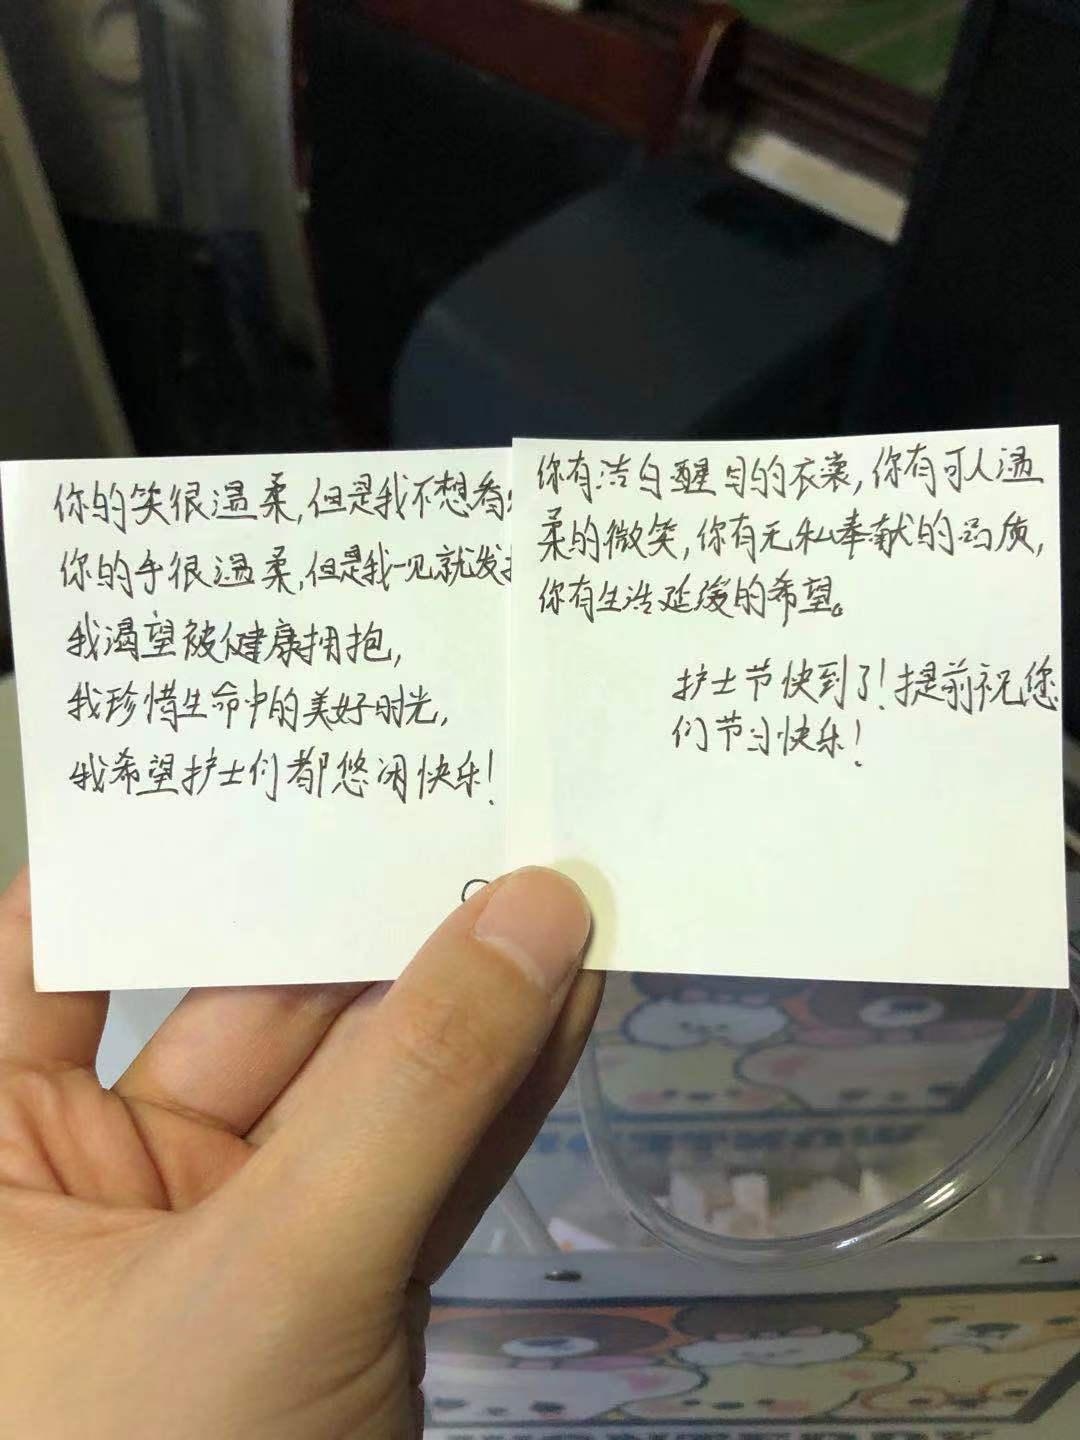 你的笑很温柔,但是我不想看
你的手很温柔,但是我一见就发
我渴望被健康拥抱,
我珍惜生命中的美好时光,
我希望护士们都悠闲快乐!
你有洁白醒目的衣裳,你有可人温
柔的微笑,你有无私奉献的品质,
你有生活延缓的希望。
护士节快到了!提前祝您
们节日快乐!